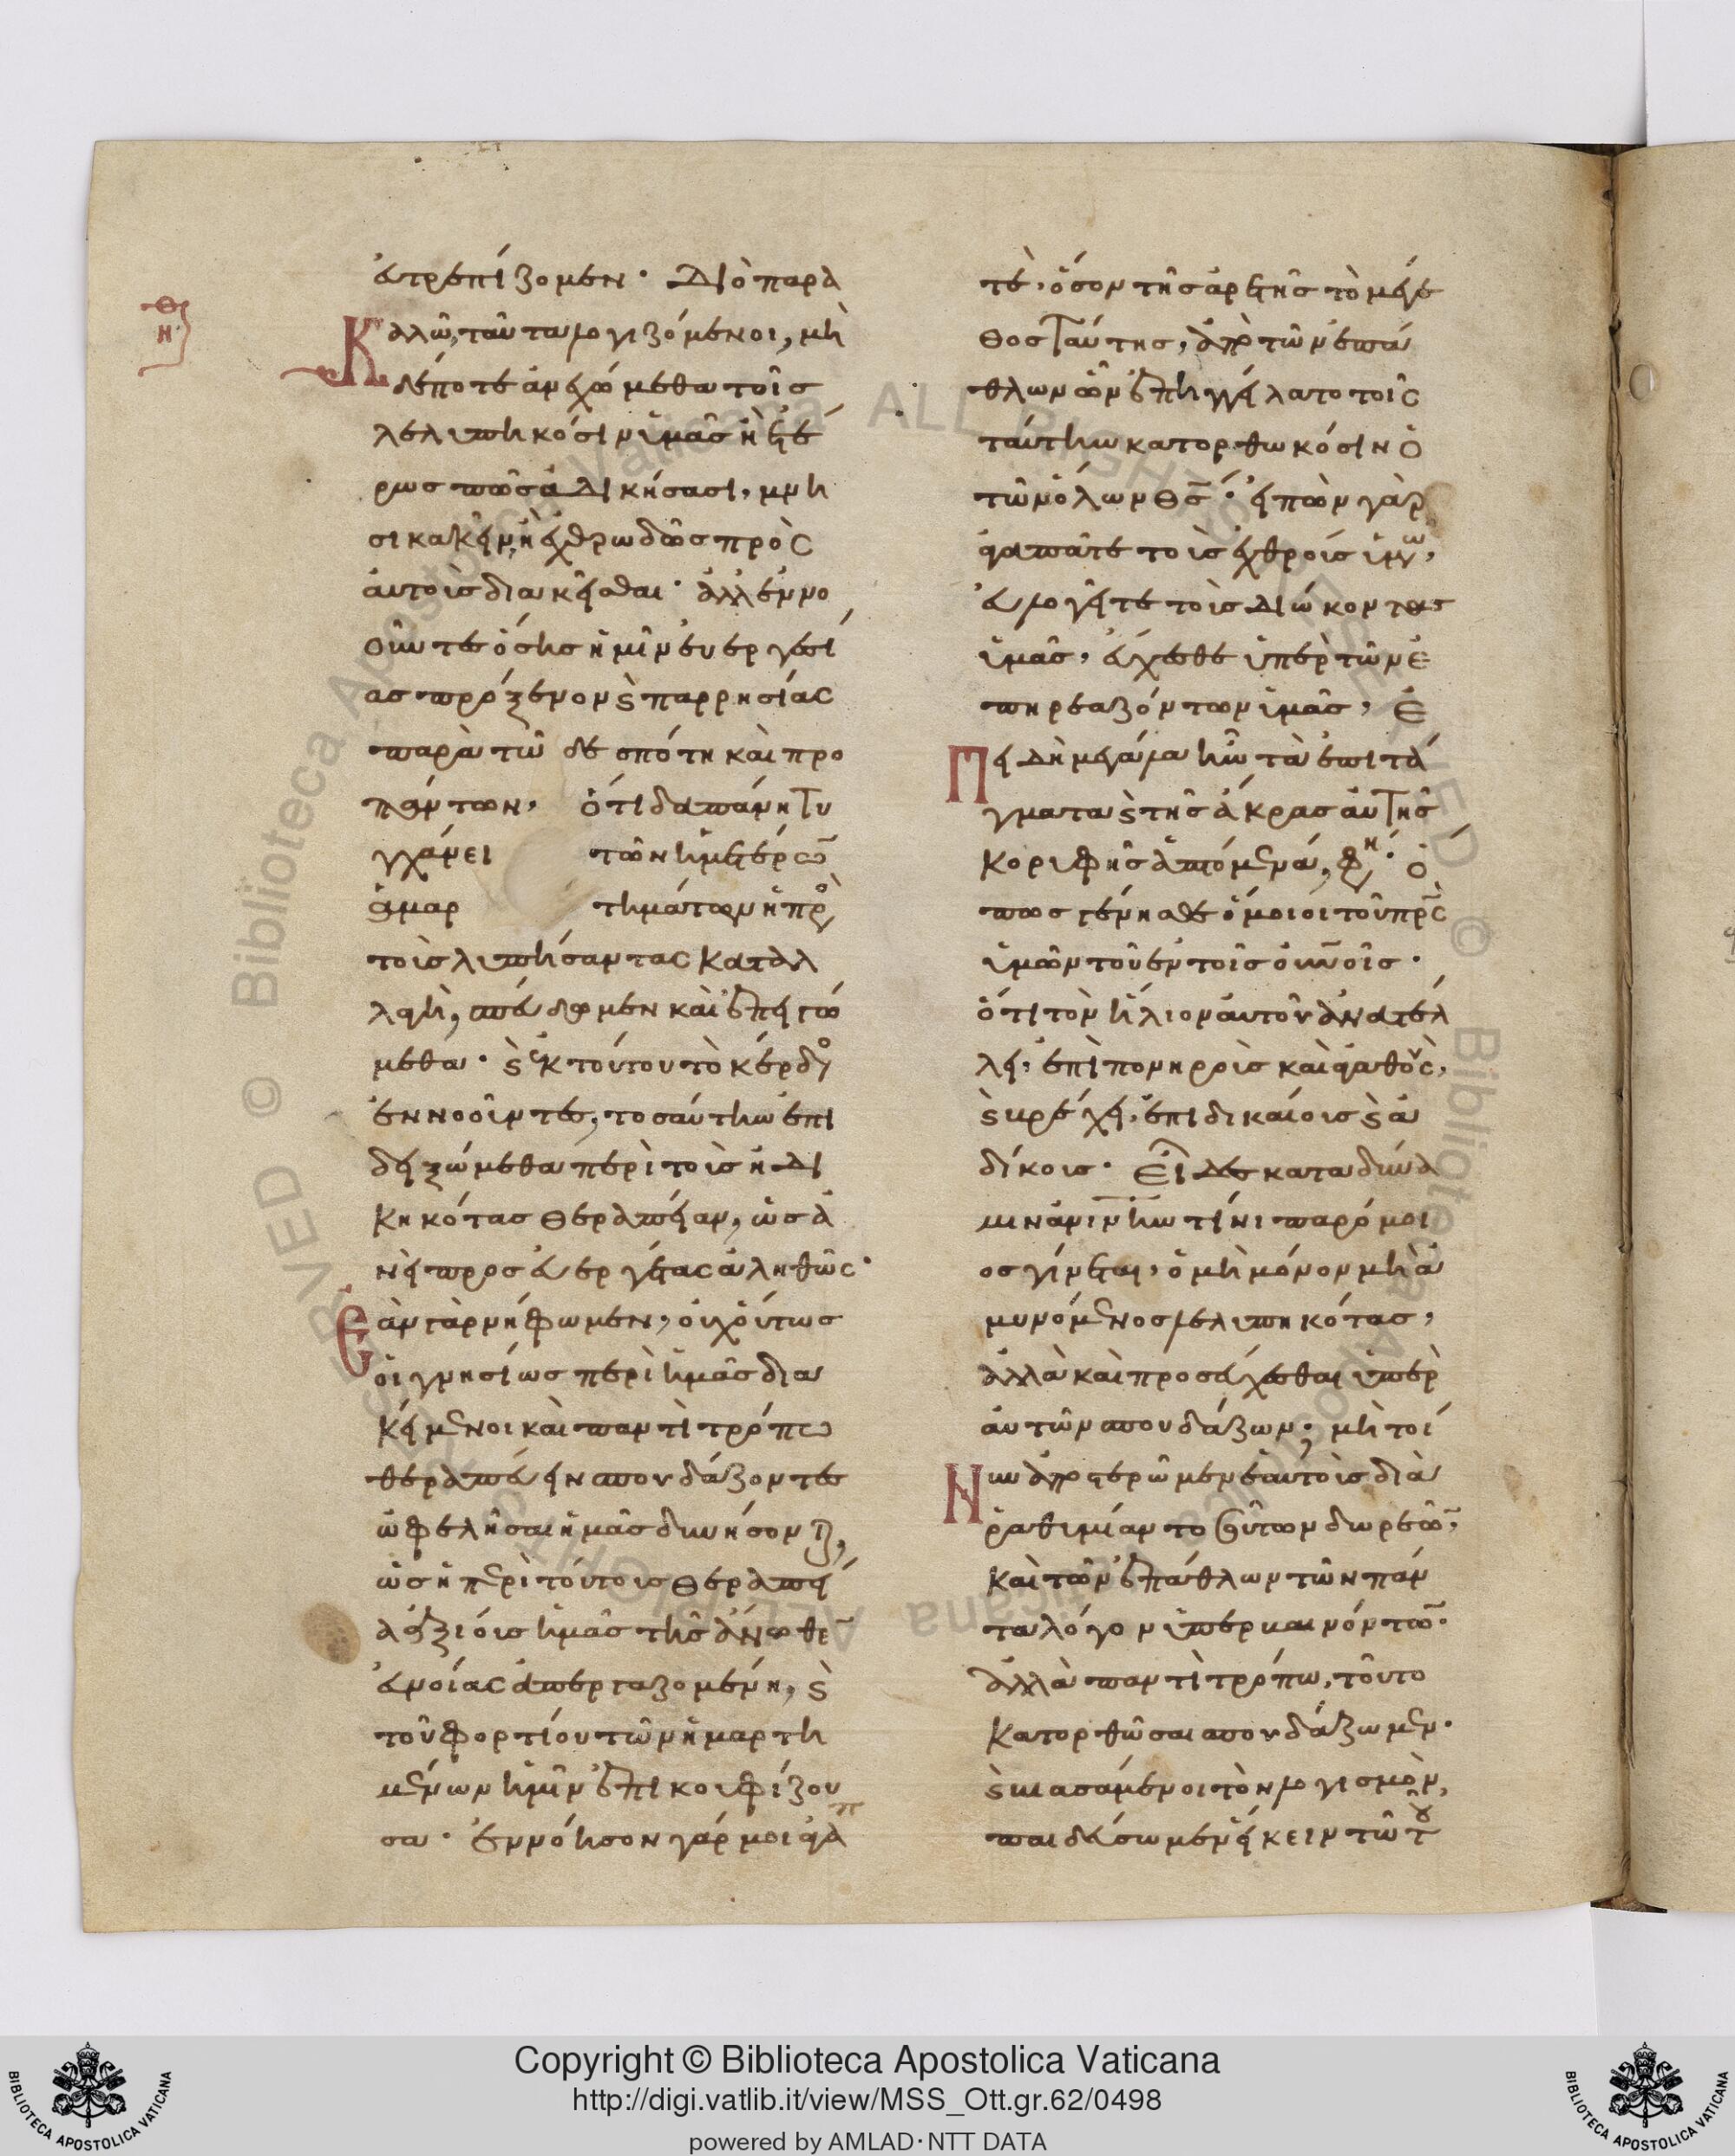 εὐτρεπίζομεν· Διὸ παρα
Καλῶ, ταῦτα λογιζόμενοι, μὴ
δέποτε ἀνεχώμεθα τοῖς
λελυπηκόσιν ἡμᾶς ἢ ἑτέ
ρως πῶς ἀδικήσασι, μνη
σικακεῖν, ἢ ἐχθρωδῶς πρὸς
αὐτοὺς διακεῖσθαι· ἀλλ' ἐννο
οῦντες ὅσης ἡμῖν εὐεργεσί
ας πρόξενον ϗ παρρησίας
παρὰ τῶ δεσπότη καὶ πρὸ
πάντων, ὅτι δαπάνη τυ
γχάνει τῶν ἡμετέρω̅
ἁμαρτημάτων ἡ πρὸ
τοὺς λυπήσαντας καταλ
λαγὴ, σπεύδωμεν καὶ ἐπειγώ
μεθα· ϗ ἐκ τούτου τὸ κέρδο
ἐννοοῦντες, τοσαύτην ἐπι
δειξώμεθα περὶ τοὺς ἠδι
κηκότας θεραπείαν, ὡς ἂ
νεὶ πρὸς εὐεργέτας ἀληθῶς·
Ἐὰν γὰρ νήφωμεν, οὐχ οὕτως
οἱ γνησίως περὶ ἡμᾶς δια
κείμενοι καὶ παντὶ τρόπω
θεραπεύειν σπουδάζοντες
ὠφελῆσαι ἡμᾶς δυνήσοντ,
ὡς ἡ περὶ τούτους θεραπεί
α ἀξίους ἡμᾶς τῆς ἄνωθε̅
εὐνοίας ἀπεργαζομένη, ϗ
τοῦ φορτίου τῶν ἡμαρτη
μένων ἡμῖν ἐπικουφίζου
σα· Ἐννόησον γάρ μοι ἀγαπ
τὲ, ὅσον τῆς ἀρετῆς τὸ μέγε
θος ταύτης, ἀπὸ τῶν ἐπά
θλων ὧν ἐπηγγείλατο τοῖς
ταύτην κατορθωκόσιν ὁ
τῶν ὅλων θς̅· εἰπὼν γὰρ
ἀγαπᾶτε τοὺς ἐχθροὺς ὑμῶ,
εὐλογεῖτε τοὺς διώκοντας
ὑμᾶς, εὔχεσθε ὑπὲρ τῶν ἐ
πηρεαζόντων ὑμᾶς, Ἐ
Πειδὴ μεγάλα ἦν τὰ ἐπιτά
γματα ϗ τῆς ἄκρας αὐτῆς
κορυφῆς ἁπτόμενα, φη· ὅ
πως γένησθε ὅμοιοι τοῦ πρς̅
ὑμῶν τοῦ ἐν τοῖς οὐνοῖς·
ὅτι τὸν ἥλιον αὐτοῦ ἀνατέλ
λει ἐπὶ πονηροὺς καὶ ἀγαθοὺς,
ϗ βρέχει ἐπὶ δικαίους ϗ ἀ
δίκους· Εἶδες κατὰ δύνα
μιν ἀνινην τίνι παρόμοι
ος γίνεται, ὁ μὴ μόνον μὴ ἀ
μυνόμενος λελυπηκότας,
ἀλλὰ καὶ προσεύχεσθαι ὑπὲρ
αὐτῶν σπουδάζων; μὴ τοί
Νυν ἀποστερῶμεν ἑαυτοὺς διὰ
ῥαθυμίαν τοσούτων δωρεῶ̅,
καὶ τῶν ἐπάθλων τῶν πάν
τα λόγον ὑπερβαινόντω̅·
ἀλλὰ παντὶ τρόπω, τοῦτο
κατορθῶσαι σπουδάζωμεν·
ϗ βιασάμενοι τὸν λογισμὸν,
παιδεύσωμεν εἴκειν τῶ τοῦ